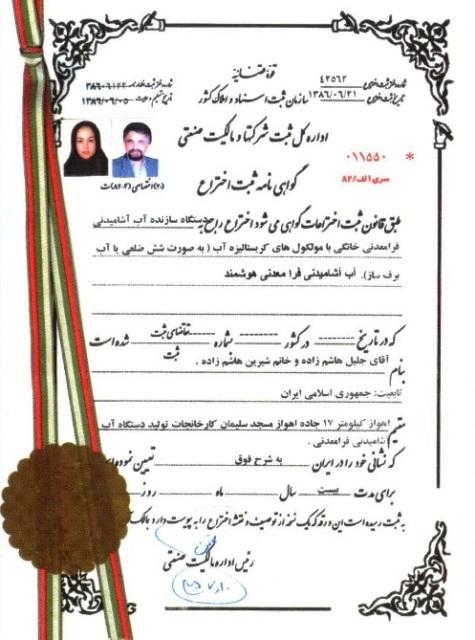 قوه قضائیه
سازمان ثبت اسناد و املاک کشور
شماره ثبت اختراع ۴۲۵۶۲
تاریخ ثبت اختراع ۱۳۸۶/۰۶/۲۱
اداره کل ثبت شرکتها و مالکیت صنعتی
۰۱۱۵۵۰ *
سری الف/۸۲
گواهی نامه ثبت اختراع
طبق قانون ثبت اختراعات گواهی می شود اختراع راجع به دستگاه سازنده آب آشامیدنی
فرامعدنی خانگی با مولکول های کریستالیزه آب ( به صورت شش ضلعی یا آب
برف ساز). آب آشامیدنی فرا معدنی هوشمند
که در تاریخ -------- در کشور -------- شماره -------- تقاضای ثبت شده است
ثبت
بنام آقای جلیل هاشم زاده و خانم شیرین هاشم زاده .
تابعیت: جمهوری اسلامی ایران
مقیم اهواز کیلومتر ۱۷ جاده اهواز مسجد سلیمان کارخانجات تولید دستگاه آب
آشامیدنی فرامعدنی .
که نشانی خود را در ایران به شرح فوق تعیین نموده
برای مدت بیست سال ماه روز
به ثبت رسیده است این ورقه که یک نسخه از توصیف و نقشه اختراع را به پیوست دارد
رئیس اداره مالکیت صنعتی